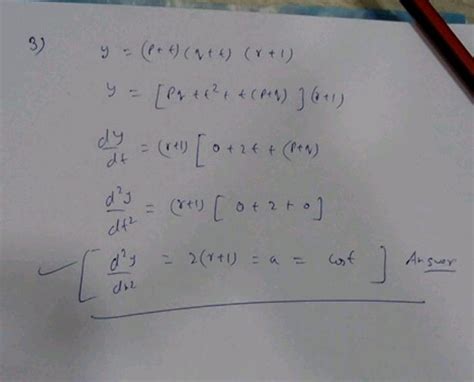 3) y = (p+t)(q+t) (r+1)
y = [pq + t² + t(p+q)](r+1)
dy/dt = (r+1) [0+2t+(p+q)
d²y/dt² = (r+1) [0+2+0]
[d²y/dx² = 2(r+1) = a = cost] Answer